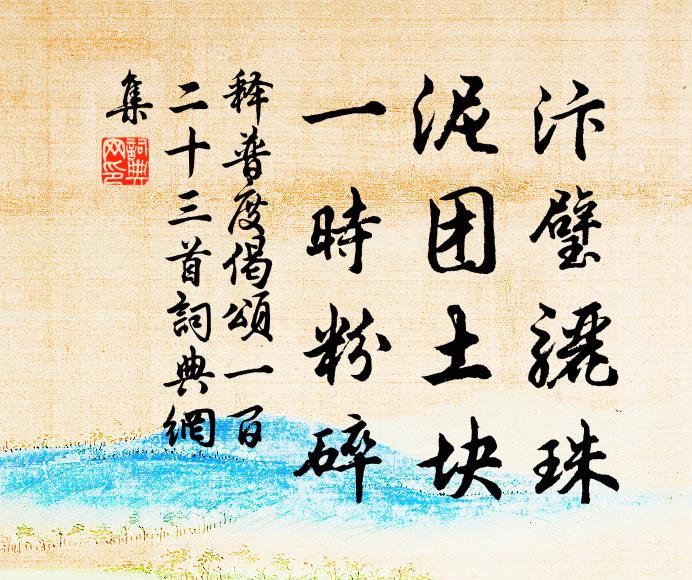 汴璧骊珠
泥团土块
一時粉碎
释普度偈頌一百
二十三首詞典網
集
詞典
网印